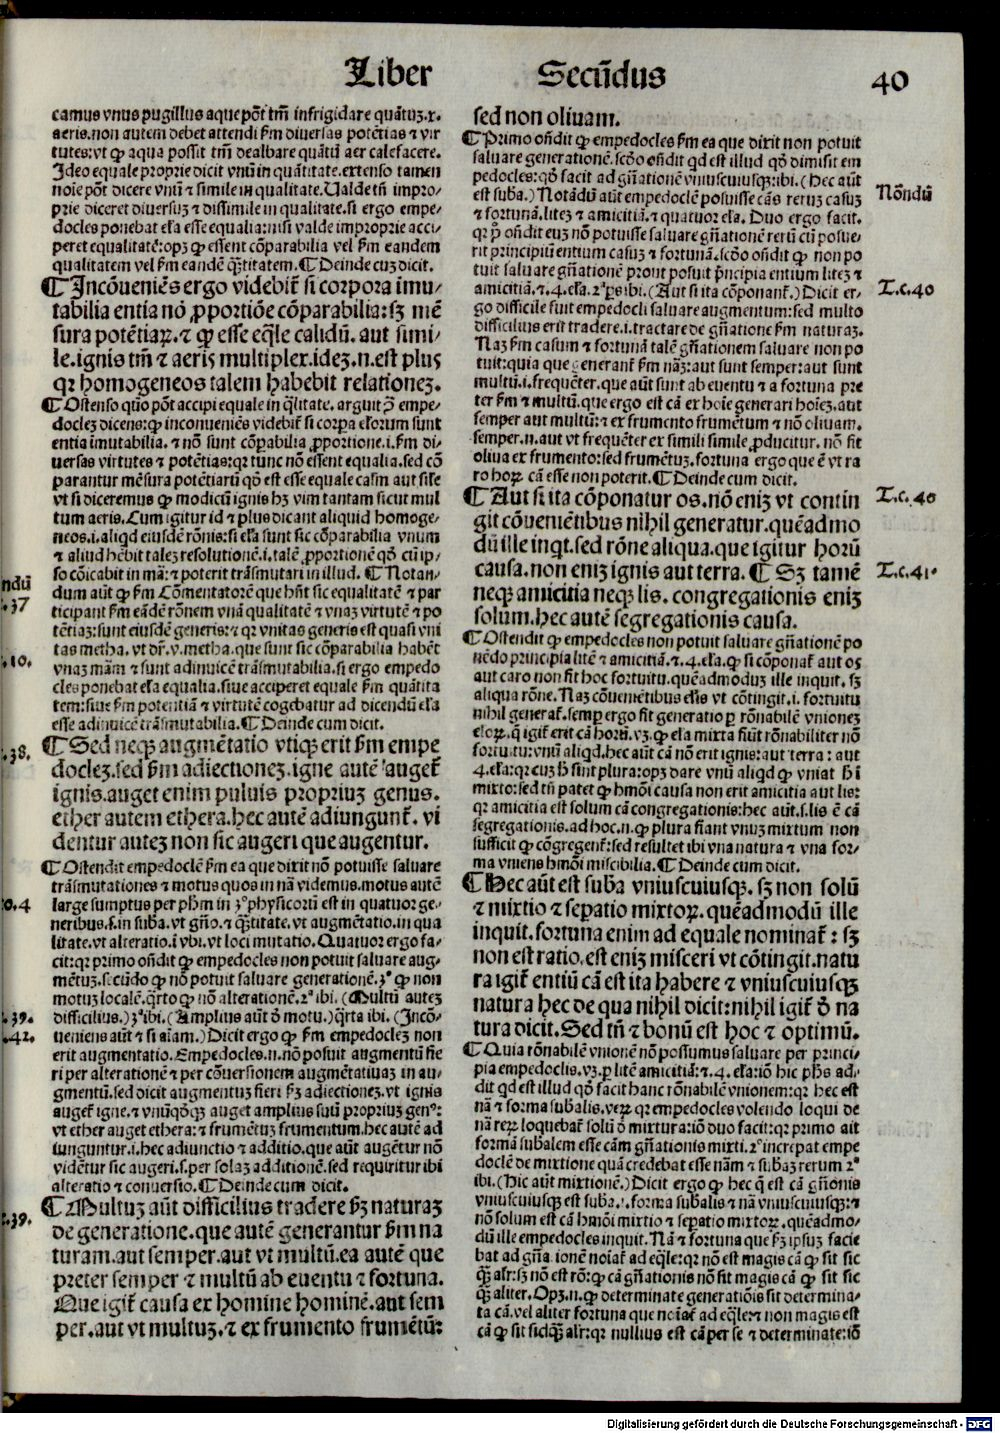 Liber Secūdus 40
camus vnus pugillus aque pōt tm̄ infrigidare quātuȝ.x.
aeris.non autem debet attendi ſm diuersas potētias ⁊ vir
tutes:vt ꝙ aqua possit tm̄ dealbare quātū aer calefacere.
Ideo equale proprie dicit vnū in quātitate.extenso tamen
noīe pōt dicere vnū ⁊ simile in qualitate. Ualde tn̄ impro/
prie diceret diuersuȝ ⁊ dissimile in qualitate.si ergo empe/
docles ponebat eľa esse equalia:nisi valde improprie acci/
peret equalitatē:opȝ ꝙ essent cōparabilia vel ſm eandem
qualitatem vel ſm eandē q̄titatem.¶Deinde cuȝ dicit.
¶Incōueniēs ergo videbit̄ si corpora imu/
tabilia entia nō ꝓportiōe cōparabilia:sȝ mē
sura potētiaꝝ.⁊ ꝙ esse eq̄le calidū. aut simi/
le.ignis tm̄ ⁊ aeris multiplex.ideȝ.n.est plus
qꝛ homogeneos talem habebit relationeȝ.
¶Ostenso quō pōt accipi equale in q̄litate. arguit ꝯ̄ empe/
docleȝ dicens:ꝙ incōueniēs videbit̄ si corpa eľorum sunt
entia imutabilia. ⁊ nō sunt cōpabilia ꝓportione.i.ſm di/
uersas virtutes ⁊ potētias:qꝛ tunc nō essent equalia.sed cō
parantur mēsura potētiarū qō est esse equale calm aut siſe
vt si diceremus ꝙ modicū ignis hȝ vim tantam sicut mul
tum aeris.Cum igitur id ⁊ plus dicant aliquid homoge/
neos.i.aliqd eiusdē rōnis:si eľa sunt sic cōpabilia vnum
⁊ aliud hēbit taleȝ resolutionē.i.talē ꝓportionē qō cū ip/
so cōicabit in mā:⁊ poterit trāsmutari in illud. ¶Notan/
dum aūt ꝙ ſm Cōmentatorē que hn̄t sic equalitatē ⁊ par
ticipant ſm eādē rōnem vnā qualitatē ⁊ vnaȝ virtutē ⁊ po
tētiaȝ:sunt eiusdē generis:⁊ qꝛ vnitas generis est quasi vni
tas metha. vt dr̄.v.metha.que sunt sic cōpabilia habēt
vnaȝ mām ⁊ sunt adinuicē trāsmutabilia.si ergo empedo
cles ponebat eľa equalia.siue acciperet equale ſm quātita
tem:siue ſm potentiā ⁊ virtutē cogebatur ad dicendū eľa
esse adinuicē trāsmutabilia.¶Deinde cum dicit.
¶Sed neqꝫ augmētatio vtiqꝫ erit ſm empe
docleȝ.sed ſm adiectioneȝ.igne autē auget̄
ignis.auget enim puluis propriuȝ genus.
ether autem ethera.hec autē adiungunt̄. vi
dentur auteȝ non sic augeri que augentur.
¶Ostendit empedoclē ſm ea que dixit nō potuisse saluare
trāsmutationes ⁊ motus quos in nā videmus.motus autē
large sumptus per phm in 3º physicorū est in quatuor ge/
neribus.s.in suba.vt gn̄o.⁊ q̄titate. vt augmētatio.in qua
litate.vt alteratio.ī vbi.vt loci mutatio.Quatuor ergo fa/
cit:qꝛ primo on̄dit ꝙ empedocles non potuit saluare aug/
mētuȝ.secūdo ꝙ nō potuit saluare generationē.3º ꝙ non
motuȝ localē.q̄rto ꝙ nō alterationē.2ª ibi.(Multū auteȝ
difficilius.)3ª ibi.(Amplius aūt ō motu.)q̄rta ibi.(Incō/
ueniens aūt ⁊ si aīam.)Dicit ergo ꝙ ſm empedocleȝ non
erit augmentatio.Empedocles.n.nō posuit augmentū fie
ri per alterationē ⁊ per cōuersionem augmētatiuaȝ in au/
gmentū.sed dicit augmentuȝ fieri ſȝ adiectioneȝ.vt ignis
auget̄ igne.⁊ vnūqōqꝫ auget amplius suū propriuȝ genꝰ:
vt ether auget ethera:⁊ frumētuȝ frumentum.hec autē ad
iunguntur.i.hec adiunctio ⁊ additio.que aūt augētur nō
vidētur sic augeri.s.per solaȝ additionē.sed requiritur ibi
alteratio ⁊ conuersio.¶Deinde cum dicit.
¶Multuȝ aūt difficilius tradere ſȝ naturaȝ
de generatione.que autē generantur ſm na
turam.aut semper.aut vt multū.ea autē que
preter semper ⁊ multū ab euentu ⁊ fortuna.
Que igit̄ causa ex homine hominē.aut sem
per.aut vt multuȝ.⁊ ex frumento frumētū:
ndū
.37
.10.
.38.
0.4
.39.
.42.
.39.
sed non oliuam.
¶Primo on̄dit ꝙ empedocles ſm ea que dixit non potuit
saluare generationē.scōo on̄dit qd est illud qō dimisit em
pedocles:qō facit ad gn̄ationē vniuscuiusqꝫ:ibi.(Hec aūt
est suba.)Notādū aūt empedoclē posuisse cās reruȝ casuȝ
⁊ fortunā.liteȝ ⁊ amicitiā.⁊ quatuor eľa. Duo ergo facit.
qꝛ pº on̄dit euȝ nō potuisse saluare gn̄ationē rerū cū posue/
rit principiū entium casuȝ ⁊ fortunā.scōo on̄dit ꝙ non po
tuit saluare gn̄ationē prout posuit pncipia entium liteȝ ⁊
amicitiā.⁊.4.eľa.2ª ps ibi.(Aut si ita cōponant̄.)Dicit er/
go difficile fuit empedocli saluare augmentum:sed multo
difficilius erit tradere.i.tractare de gn̄atione ſm naturaȝ.
Naȝ ſm casum ⁊ fortunā talē gn̄ationem saluare non po
tuit:quia que generant̄ ſm nāȝ:aut sunt semper:aut sunt
multū.i.frequēter.que aūt sunt ab euentu ⁊ a fortuna pre
ter ſm ⁊ multū.que ergo est cā ex hoīe generari hoīeȝ.aut
semper aut multū:⁊ ex frumento frumētum ⁊ nō oliuam.
semper.n.aut vt frequēter ex simili simile ꝓducitur. nō fit
oliua ex frumento:sed frumētuȝ.fortuna ergo que ē vt ra
ro hoꝝ cā esse non poterit.¶Deinde cum dicit.
¶Aut si ita cōponatur os.nō eniȝ vt contin
git cōueniētibus nihil generatur.quēadmo
dū ille inqt.sed rōne aliqua.que igitur horū
causa.non eniȝ ignis aut terra. ¶Sȝ tamē
neqꝫ amicitia neqꝫ lis. congregationis eniȝ
solum.hec autē segregationis causa.
¶Ostendit ꝙ empedocles non potuit saluare gn̄ationē po
nēdo principia litē ⁊ amicitiā.⁊.4.eľa.ꝙ si cōponat̄ aut os
aut caro non fit hoc fortuitu.quēadmoduȝ ille inquit. sȝ
aliqua rōne. Naȝ cōuenietibus eľis vt cōtingit.i. fortuitu
nihil generat̄.semp ergo fit generatio ꝑ rōnabilē vnioneȝ
eľoꝝ.q̄ igit̄ erit cā horū.vȝ.ꝙ eľa mixta fiūt rōnabiliter nō
fortuitu:vnū aliqd.hec aūt cā nō erit ignis:aut terra: aut
4.eľa:qꝛ cuȝ h̄ sint plura:opȝ dare vnū aliqd ꝙ vniat h̄ ī
mixto:sed tn̄ patet ꝙ hmōi causa non erit amicitia aut lis:
qꝛ amicitia est solum cā congregationis:hec aūt.s.lis ē cā
segregationis.ad hoc.n.ꝙ plura fiant vnuȝ mixtum non
sufficit ꝙ cōgregent̄:sed resultet ibi vna natura ⁊ vna for/
ma vniens hmōi miscibilia.¶Deinde cum dicit.
¶Hec aūt est suba vniuscuiusqꝫ. sȝ non solū
⁊ mixtio ⁊ sepatio mixtoꝝ. quēadmodū ille
inquit.fortuna enim ad equale nominat̄: sȝ
non est ratio.est eniȝ misceri vt cōtingit.natu
ra igit̄ entiū cā est ita habere ⁊ vniuscuiusqꝫ
natura hec de qua nihil dicit:nihil igit̄ ō na
tura dicit. Sed tn̄ ⁊ bonū est hoc ⁊ optimū.
¶Quia rōnabilē vnionē nō possumus saluare per princi/
pia empedoclis.vȝ.ꝑ litē amicitiā:⁊.4.eľa:iō hic phs ad/
dit qd est illud qō facit hanc rōnabilē vnionem:qꝛ hec est
nā ⁊ forma subalis.veꝝ qꝛ empedocles volendo loqui de
nā reꝝ loquebat̄ solū ō mixtura:iō duo facit:qꝛ primo ait
formā subalem esse cām gn̄ationis mixti.2º increpat empe
doclē de mixtione quā credebat esse nām ⁊ subaȝ rerum 2ª
ibi.(Hic aūt mixtionē.)Dicit ergo ꝙ hec q̄ est cā gn̄onis
vniuscuiusqꝫ est suba.i.forma subalis ⁊ nā vniuscuiusqꝫ:⁊
nō solum est cā hmōi mixtio ⁊ sepatio mixtoꝝ.quēadmo/
dū ille empedocles inquit. Nā ⁊ fortuna que ſȝ ipsuȝ facie
bat ad gn̄ationē noīat̄ ad eq̄le:qꝛ nō est magis cā ꝙ sit sic
q̄ꝫ alr̄:sȝ nō est rō:ꝙ cā gn̄ationis nō fit magis cā ꝙ sit sic
q̄ꝫ aliter. Opȝ.n.ꝙ determinate generatiōis sit determina/
ta cā.vel aliter fortuna que noīat̄ ad eq̄le:⁊ non magis est
cā ꝙ sit sic q̄ꝫ alr̄:qꝛ nullius est cā per se ⁊ determinate:iō
Nōndū
T.c.40
T.c.40
T.c.41.
Digitalisierung gefördert durch die Deutsche Forschungsgemeinschaft - DFG